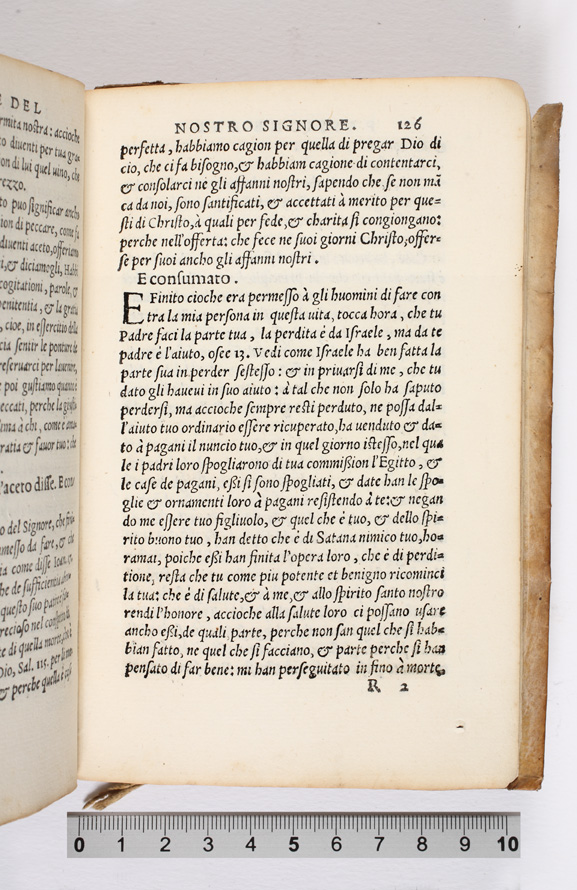 E DEL
ermita nostra: accioche
to diventi per tua gra
on di lui quel vino, che
rezzo.
to puo significar ancho
ion di peccare, come fu
diventi aceto, offeriamo
i, & diciamogli, Habbi
cogitationi, parole, &
penitentia, & la gratia
, cioe, in essercitio della
cia sentir le ponture de
reservarci per lavenire,
e poi gustiamo quanto è
eccati, perche la giusti
ima à chi, come e
ratia & favor tuo: che
l'aceto disse. E con
o del Signore, che
messo da fare, & che
ia come disse Ioan. 17.
he de sufficientia
questo suo
recioso nel
te di quella morte,
Dio, Sal. 115. per
& perche quella è
NOSTRO SIGNORE. 126
perfetta, habbiamo cagion per quella di pregar Dio di
cio, che ci fa bisogno, & habbiam cagione di contentarci,
& consolarci ne gli affanni nostri, sapendo che se non mā
ca da noi, sono santificati, & accettati à merito per que-
sti di Christo, à quali per fede, & charita si congiongano:
perche nell'offerta: che fece ne suoi giorni Christo, offer-
se per suoi ancho gli affanni nostri.
E consumato.
E Finito cioche era permesso à gli huomini di fare con
tra la mia persona in questa uita, tocca hora, che tu
Padre faci la parte tua, la perdita è da Israele, ma da te
padre è l'aiuto, osee 13. Vedi come Israele ha ben fatta la
parte sua in perder sestesso: & in privarsi di me, che tu
dato gli haueui in suo aiuto: à tal che non solo ha saputo
perdersi, ma accioche sempre resti perduto, ne possa dal-
l'aiuto tuo ordinario essere ricuperato, ha uenduto & da-
to à pagani il nuncio tuo, & in quel giorno istesso, nel qua
le i padri loro spogliarono di tua commißion l'Egitto, &
le case de pagani, eßi si sono spogliati, & date han le spo-
glie & ornamenti loro à pagani resistendo à te: & negan
do me essere tuo figliuolo, & quel che è tuo, & dello spi-
rito buono tuo, han detto che è di Satana nimico tuo, ho-
ramai, poiche eßi han finita l'opera loro, che è di perdi-
tione, resta che tu come piu potente et benigno ricominci
la tua: che è di salute, & à me, & allo spirito santo nostro
rendi l'honore, accioche alla salute loro ci possano usare
ancho eßi, de quali parte, perche non san quel che si hab-
bian fatto, ne quel che si facciano, & parte perche si han
pensato di far bene: mi han perseguitato in fino à morte,
R 2
0 1 2 3 4 5 6 7 8 9 10